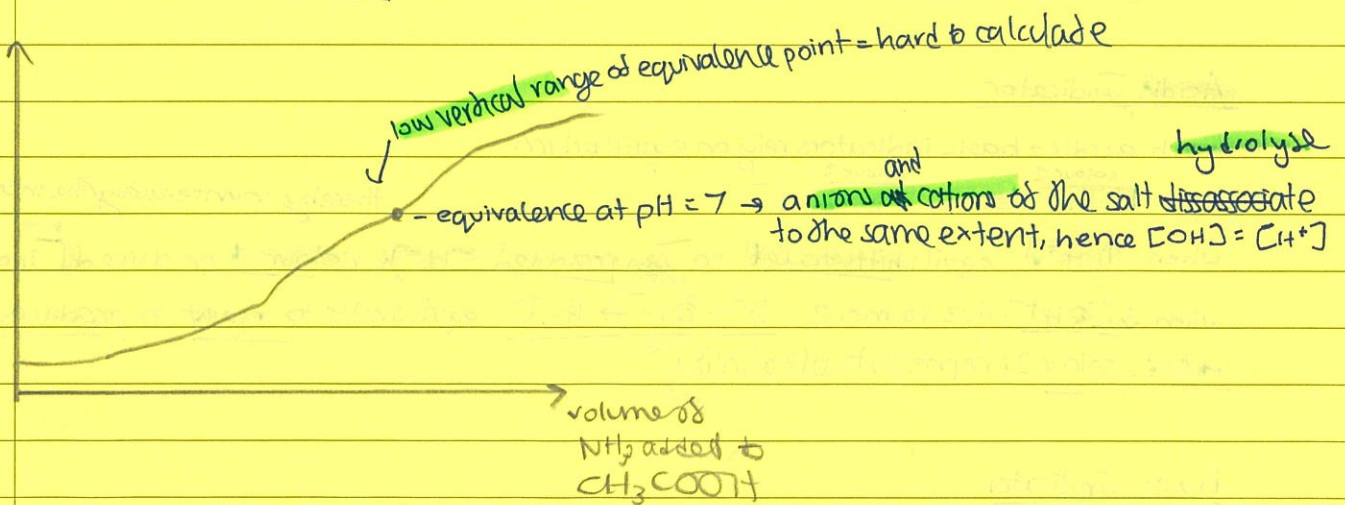 low vertical range of equivalence point = hard to calculate
and
hydrolyse
- equivalence at pH = 7 → anions cations of the salt dissasociate
to the same extent, hence [OH] = [H⁺]
volume of
NH₃ added to
CH₃COOH